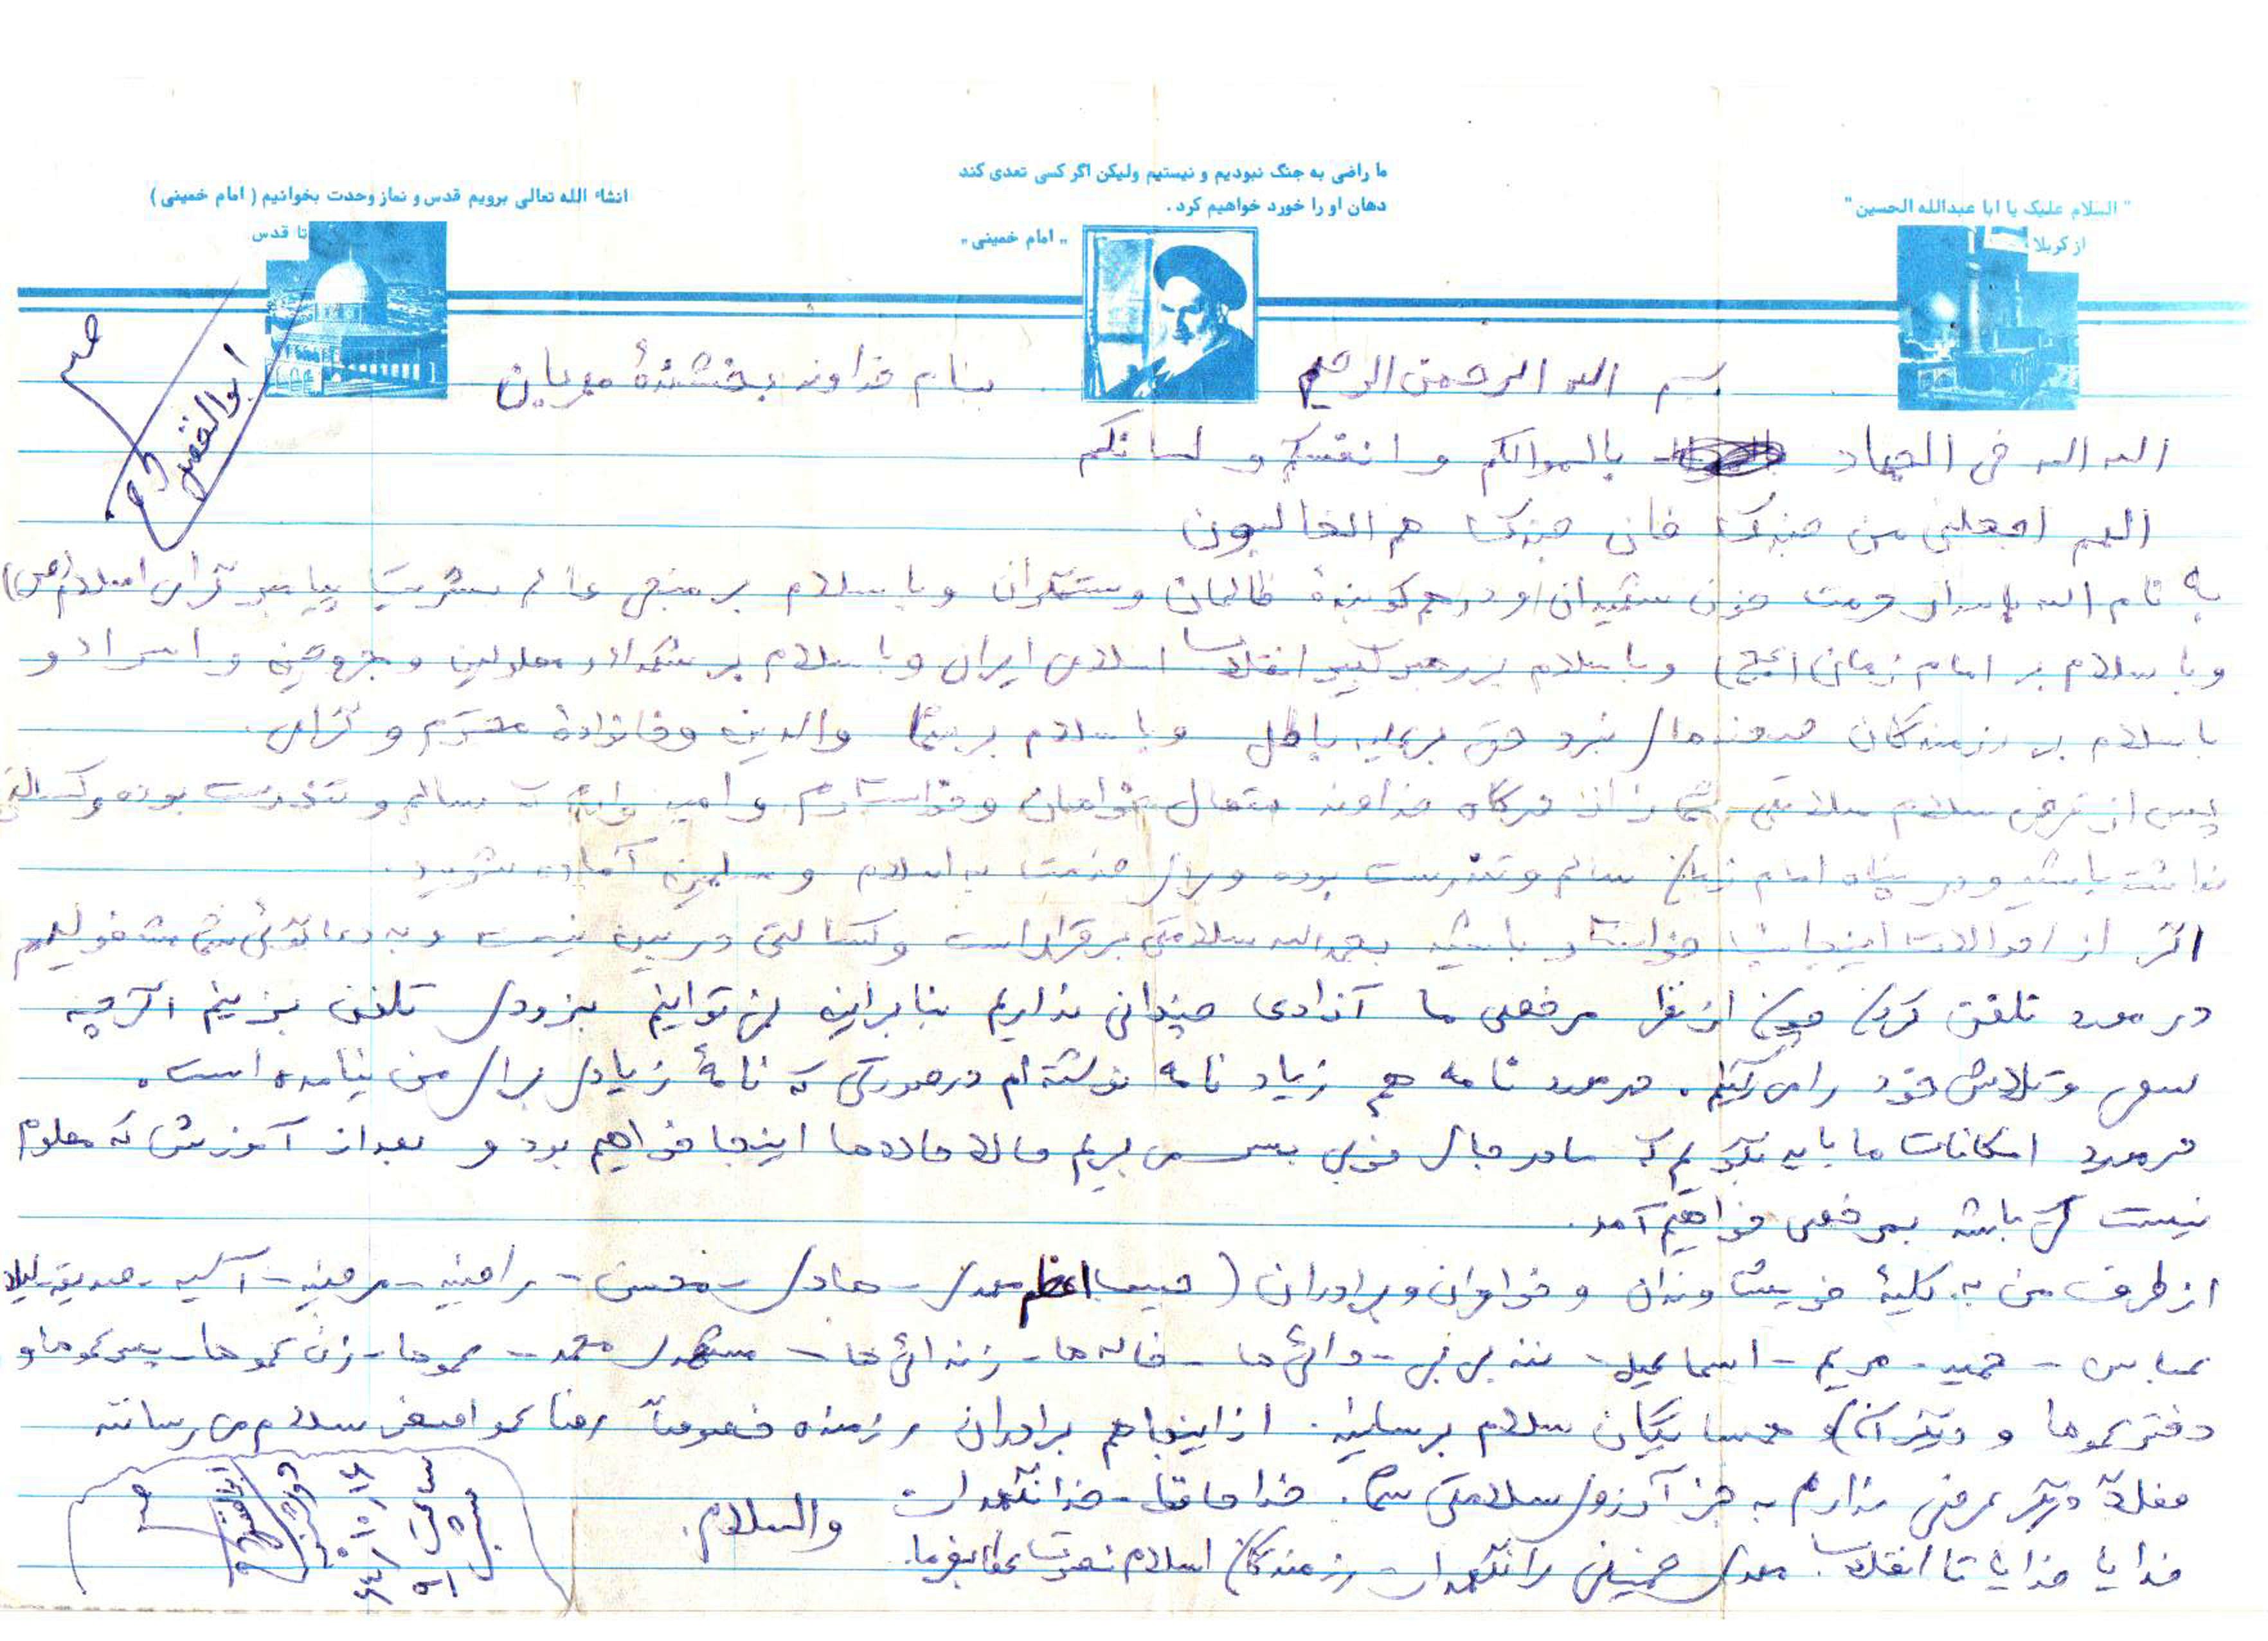 ما راضی به جنگ نبودیم و نیستیم ولیکن اگر کسی تعدی کند
دهان او را خورد خواهیم کرد.
„ امام خمینی„
" السلام علیک یا ابا عبدالله الحسین"
از کربلا
انشاء الله تعالی برویم قدس و نماز وحدت بخوانیم ( امام خمینی )
تا قدس
بسم الله الرحمن الرحیم بنام خداوند بخشندهٔ مهربان
ابوالفضل
الله الله فی الجهاد باموالکم و انفسکم و لسانکم
اللهم اجعلنی من جندک فان جندک هم الغالبون
به نام الله پاسدار حرمت خون شهیدان و درهم کوبندهٔ ظالمان و ستمگران و با سلام بر منجی عالم بشریت پیامبر گرامی اسلام (ص)
و با سلام بر امام زمان (عج) و با سلام بر رهبر کبیر انقلاب اسلامی ایران و با سلام بر شهدا و معلولین و مجروحین و اسرا و
با سلام بر رزمندگان جبهه‌های نبرد حق بر علیه باطل و با سلام بر شما والدین و خانوادهٔ محترم و گرامی.
پس از عرض سلام سلامتی شما را از درگاه خداوند متعال خواهان و خواستارم و امیدوارم که سالم و تندرست بوده و کسالتی
نداشته باشید و در پناه امام زمان سالم و تندرست بوده و برای خدمت به اسلام و مسلمین آماده شوید.
اگر از احوالات اینجانب خواسته باشید بحمدالله سلامتی برقرار است و کسالتی در بین نیست و به دعاگوئی شما مشغولیم
در مورد تلفن کردن چون از نظر مرخصی ما آزادی چندانی نداریم بنابراین نمی‌توانیم بزودی تلفن بزنیم اگرچه
سعی و تلاش خود را می‌کنیم. در مورد نامه هم زیاد نامه نوشته‌ام در صورتی که نامهٔ زیادی برای من نیامده است.
در مورد امکانات ما باید بگویم که ما در جای خوبی بسر می‌بریم حالا حالاها اینجا خواهیم بود و بعد از آموزش که معلوم
نیست کی باشد بمرخصی خواهیم آمد.
از طرف من به کلیهٔ خویشاوندان و خواهران و برادران ( اعظم مهدی - هادی - محسن - راضیه - مرضیه - آسیه - صدیقه - لیلا
عباس - حمید - مریم - اسماعیل - ننه بی بی - دائی ها - خاله ها - زندائی ها - محمد - عموها - زن عموها - پسر عموها و
دختر عموها و دیگر آنها و همسایگان سلام برسانید. از اینجا هم برادران رزمنده خصوصاً رضا سلام می‌رسانند
فعلاً دیگر عرضی ندارم به جز آرزوی سلامتی شما. خداحافظ - خدانگهدار والسلام.
خدایا خدایا تا انقلاب مهدی خمینی را نگهدار - رزمندگان اسلام نصرت عطا بفرما.
ابوالفضل